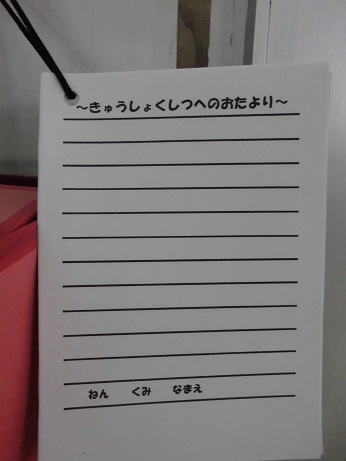 ～きゅうしょくしつへのおたより～
ねん　くみ　なまえ